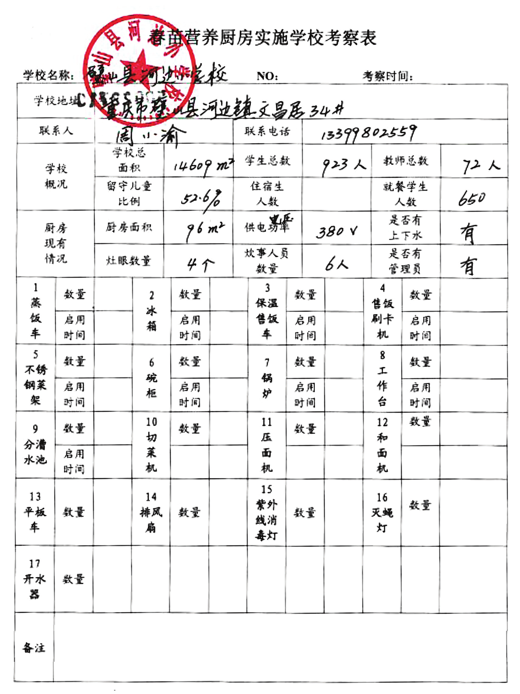 春苗营养厨房实施学校考察表
学校名称: 璧山县河边小学校 NO: 考察时间:
学校地址 重庆市璧山县河边镇文昌居34#
联系人 周小渝 联系电话 13399802559
学校概况 学校总面积 14609m² 学生总数 923人 教师总数 72人
留守儿童比例 52.6% 住宿生人数 就餐学生人数 650
厨房现有情况 厨房面积 96m² 供电功率 电压 380V 是否有上下水 有
灶眼数量 4个 炊事人员数量 6人 是否有管理员 有
1 蒸饭车 数量 2 冰箱 数量 3 保温售饭车 数量 4 售饭刷卡机 数量
启用时间 启用时间 启用时间 启用时间
5 不锈钢菜架 数量 6 碗柜 数量 7 锅炉 数量 8 工作台 数量
启用时间 启用时间 启用时间 启用时间
9 分漕水池 数量 10 切菜机 数量 11 压面机 数量 12 和面机 数量
启用时间
13 平板车 数量 14 排风扇 数量 15 紫外线消毒灯 数量 16 灭蝇灯 数量
17 开水器 数量
备注